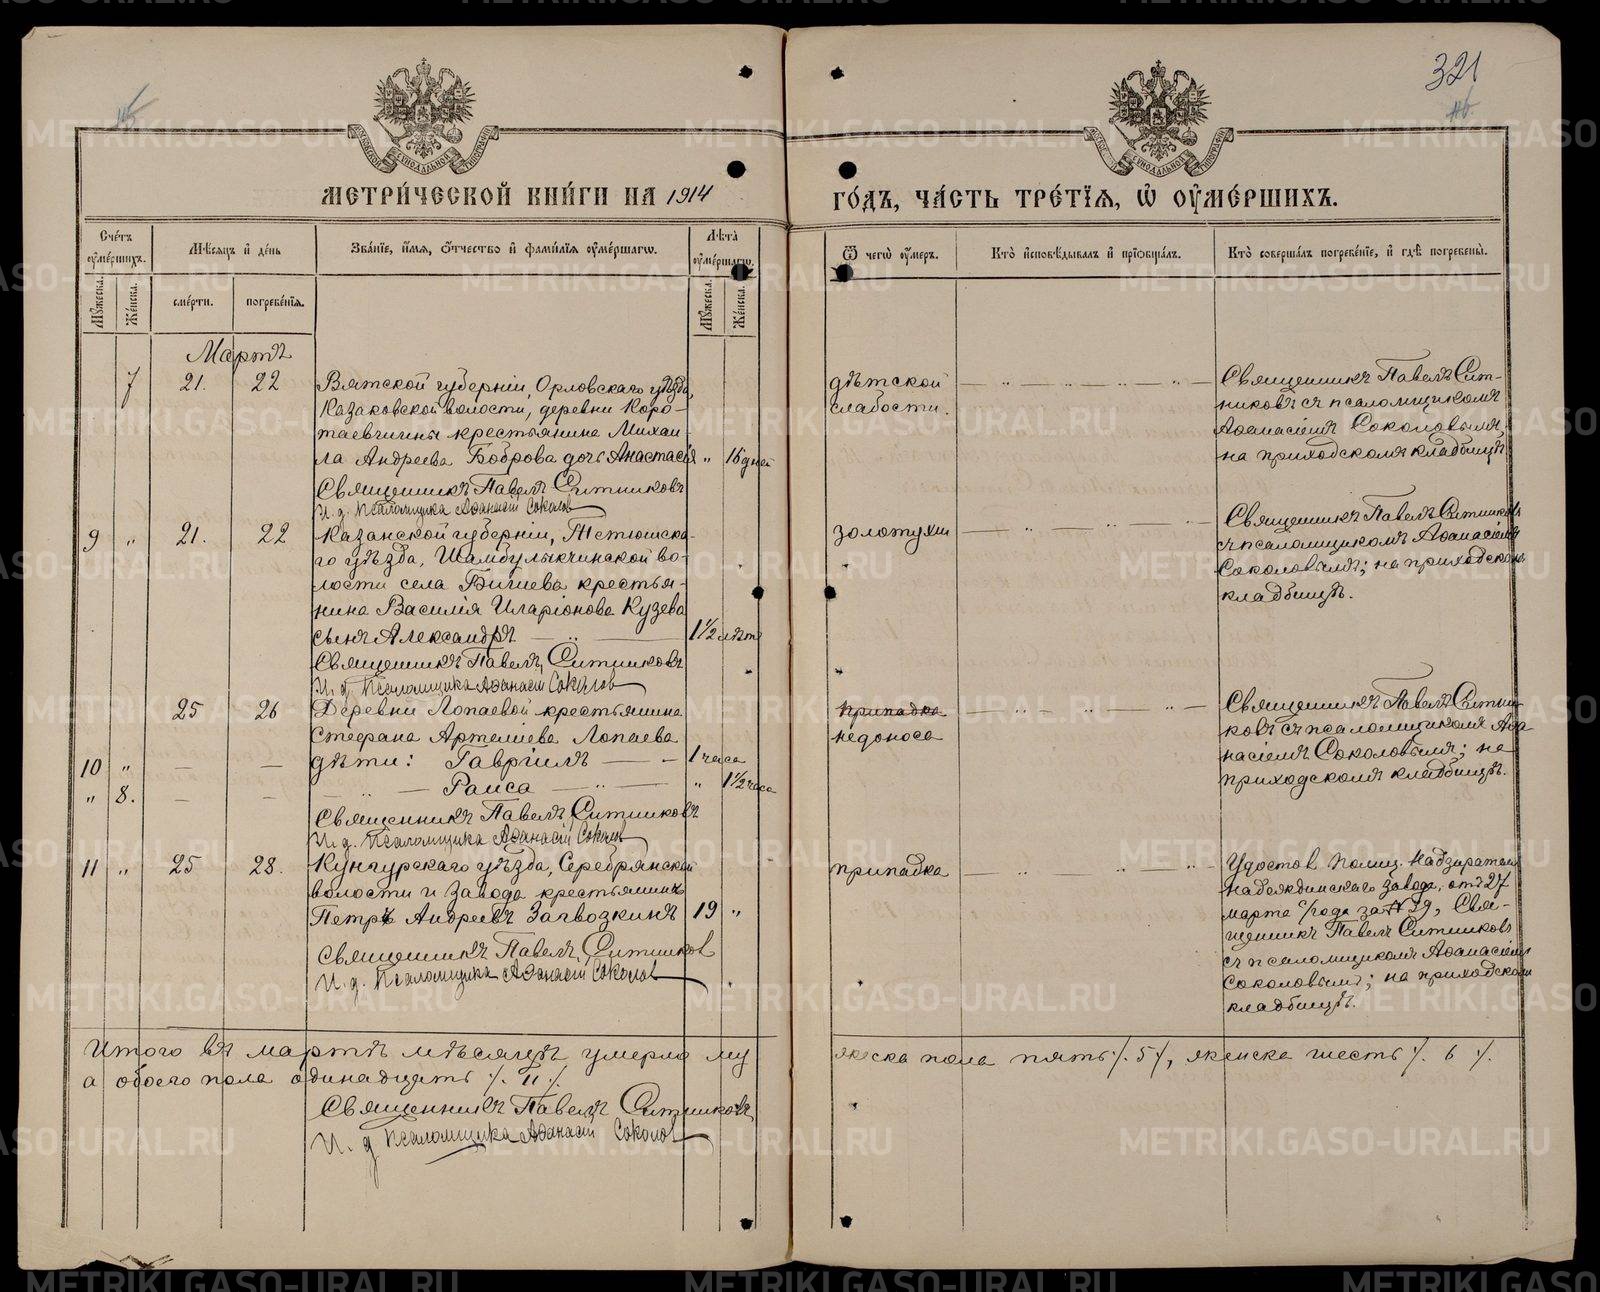 321
МЕТРИ́ЧЕСКОЙ КНИ́ГИ НА 1914
ГО́ДЪ, ЧА́СТЬ ТРЕ́ТІѦ, Ѡ҆ ОУ҆МЕ́РШИХЪ.
Сче́тъ оу҆ме́ршихъ.
Мꙋ́жеска.
Же́нска.
Мѣ́сяцъ и҆ де́нь
сме́рти.
погребе́нїѧ.
Зва́нїе, и҆́мѧ, ѻ҆́тчество и҆ фами́лїѧ оу҆ме́ршагѡ.
Лѣ́та оу҆ме́ршагѡ.
Мꙋ́жеска.
Же́нска.
Ѿ чегѡ̀ оу҆́меръ.
Кто̀ и҆сповѣ́дывалъ и҆ прїѡбща́лъ.
Кто̀ соверша́лъ погребе́нїе, и҆ гдѣ̀ погребены̀.
Мартъ
7 21. 22 Вятской губерніи, Орловскаго уѣзда,
Казаковской волости, деревни Коро-
таевчины крестьянина Михаи-
ла Андреева Боброва дочь Анастасія „ 16 дней
Священникъ Павелъ Ситниковъ
И. д. Псаломщика Аѳанасій Соколов
дѣтской
слабости.
Священникъ Павелъ Сит-
никовъ съ псаломщикомъ
Аѳанасіемъ Соколовымъ,
на приходскомъ кладбищѣ.
9 „ 21. 22 Казанской губерніи, Тетюшска-
го уѣзда, Шамбулыкчинской во-
лости села Бишева крестья-
нина Василія Иларіонова Кузева
сынъ Александръ — „ — 1 1/2 лѣтъ
Священникъ Павелъ Ситниковъ
И. д. Псаломщика Аѳанасій Соколов
золотухи
Священникъ Павелъ Ситниковъ
съ псаломщикомъ Аѳанасіемъ
Соколовымъ; на приходскомъ
кладбищѣ.
25 26 Деревни Лопаевой крестьянина
Стефана Артеміева Лопаева
10 „ — — дѣти: Гавріилъ — - 1 часа
„ 8. — - — „ — Раиса — „ — „ 1 1/2 часа
Священникъ Павелъ Ситниковъ
И. д. Псаломщика Аѳанасій Соколов
припадка
недоноса
Священникъ Павелъ Ситни-
ковъ съ псаломщикомъ Аѳа-
насіемъ Соколовымъ; на
приходскомъ кладбищѣ.
11 „ 25 28. Кунгурскаго уѣзда, Серебрянской
волости и завода крестьянинъ
Петръ Андреевъ Загвозкинъ 19 „
Священникъ Павелъ Ситников
И. д. Псаломщика Аѳанасій Соколов
припадка
Удостов. Полиц. Надзирателя
Надеждинскаго завода, отъ 27
марта с/года за № 39, Свя-
щенникъ Павелъ Ситниковъ
съ псаломщикомъ Аѳанасіемъ
Соколовымъ; на приходскомъ
кладбищѣ.
Итого въ мартѣ мѣсяцѣ умерло му
жеска пола пять ./. 5 ./., женска шесть ./. 6 ./.
а обоего пола одинадцать ./. 11 ./.
Священникъ Павелъ Ситниковъ
И. д. Псаломщика Аѳанасій Соколов
METRIKI.GASO-URAL.RU